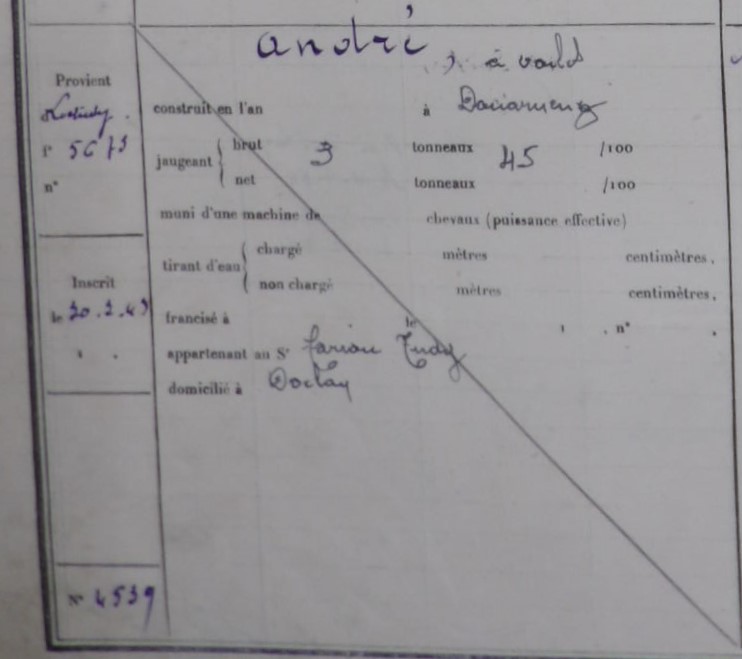 andré, à voiles
Provient
construit en l'an à Douarnenez
f° 5673
jaugeant { brut 3 tonneaux 45 /100
net tonneaux /100
n°
muni d'une machine de chevaux (puissance effective)
tirant d'eau { chargé mètres centimètres.
non chargé mètres centimètres.
Inscrit
le 20.2.47 francisé à le , . n° .
appartenant au Sr Tudy
domicilié à
N° 4539